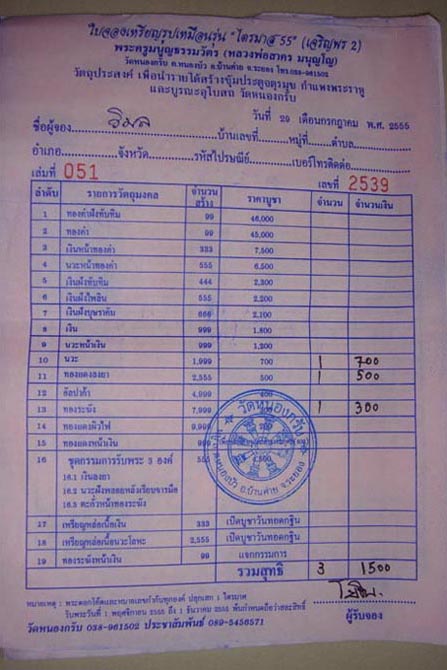 ใบจองเหรียญรูปเหมือนรุ่น "ไตรมาส 55" (เจริญพร 2)
พระครูมนูญธรรมวัตร (หลวงพ่อสาคร มนุญโญ)
วัดหนองกรับ ต.หนองบัว อ.บ้านค่าย จ.ระยอง โทร.038-961502
วัตถุประสงค์ เพื่อนำรายได้สร้างซุ้มประตูจตุรมุข กำแพงพระราหู
และบูรณะอุโบสถ วัดหนองกรับ
วันที่ 29 เดือนกรกฎาคม พ.ศ. 2555
ชื่อผู้จอง วิมล บ้านเลขที่ หมู่ที่ ตำบล
อำเภอ จังหวัด รหัสไปรษณีย์ เบอร์โทรติดต่อ
เล่มที่ 051 เลขที่ 2539
ลำดับ รายการวัตถุมงคล จำนวนสร้าง ราคาบูชา จำนวน จำนวนเงิน
1 ทองคำฝังทับทิม 99 46,000
2 ทองคำ 99 45,000
3 เงินหน้าทองคำ 333 7,500
4 นวะหน้าทองคำ 555 6,500
5 เงินฝังทับทิม 444 2,300
6 เงินฝังไพลิน 555 2,200
7 เงินฝังบุษราคัม 666 2,100
8 เงิน 999 1,800
9 นวะหน้าเงิน 999 1,200
10 นวะ 1,999 700 1 700
11 ทองแดงลงยา 2,555 500 1 500
12 อัลปาก้า 4,999 400
13 ทองระฆัง 7,999 1 300
14 ทองแดงผิวไฟ 9,999
15 ทองแดงหน้าเงิน 999
16 ชุดกรรมการรับพระ 3 องค์ 555
16.1 เงินลงยา
16.2 นวะฝังพลอยหลังเรียบจารมือ
16.3 ตะกั่วหน้าทองระฆัง
วัดหนองกรับ
ต.หนองบัว อ.บ้านค่าย จ.ระยอง
17 เหรียญหล่อเนื้อเงิน 333 เปิดบูชาวันทอดกฐิน
18 เหรียญหล่อเนื้อนวะโลหะ 2,555 เปิดบูชาวันทอดกฐิน
19 ทองระฆังหน้าเงิน 99 แจกกรรมการ
รวมสุทธิ 3 1500
หมายเหตุ : พระตอกโค๊ตและหมายเลขกำกับทุกองค์ ปลุกเสก 1 ไตรมาส
รับพระวันที่ 1 พฤศจิกายน 2555 ถึง 1 ธันวาคม 2555 พ้นกำหนดถือว่าสละสิทธิ์
ผู้รับจอง
วัดหนองกรับ 038-961502 ประชาสัมพันธ์ 089-5456571